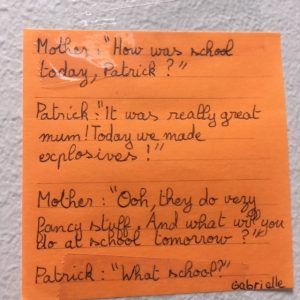 Mother : "How was school
today, Patrick ?"
Patrick : "It was really great
mum! Today we made
explosives !"
Mother : "Ooh, they do very
fancy stuff. And what will you
do at school tomorrow ?"
Patrick : "What school?"
Gabrielle